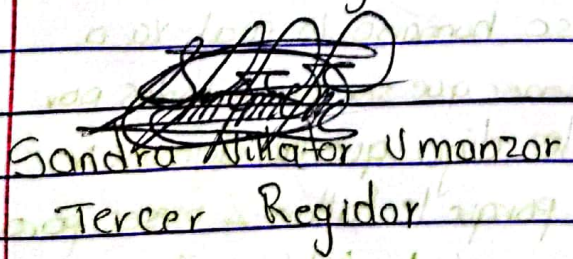 Sandra Villator Umanzor
Tercer Regidor